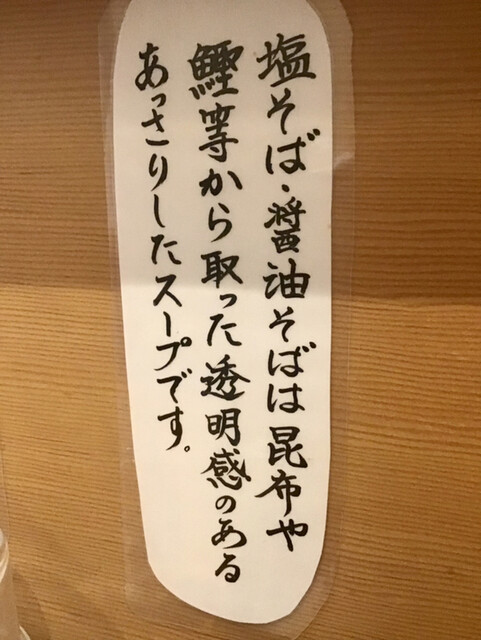 塩そば・醤油そばは昆布や
鰹等から取った透明感のある
あっさりしたスープです。